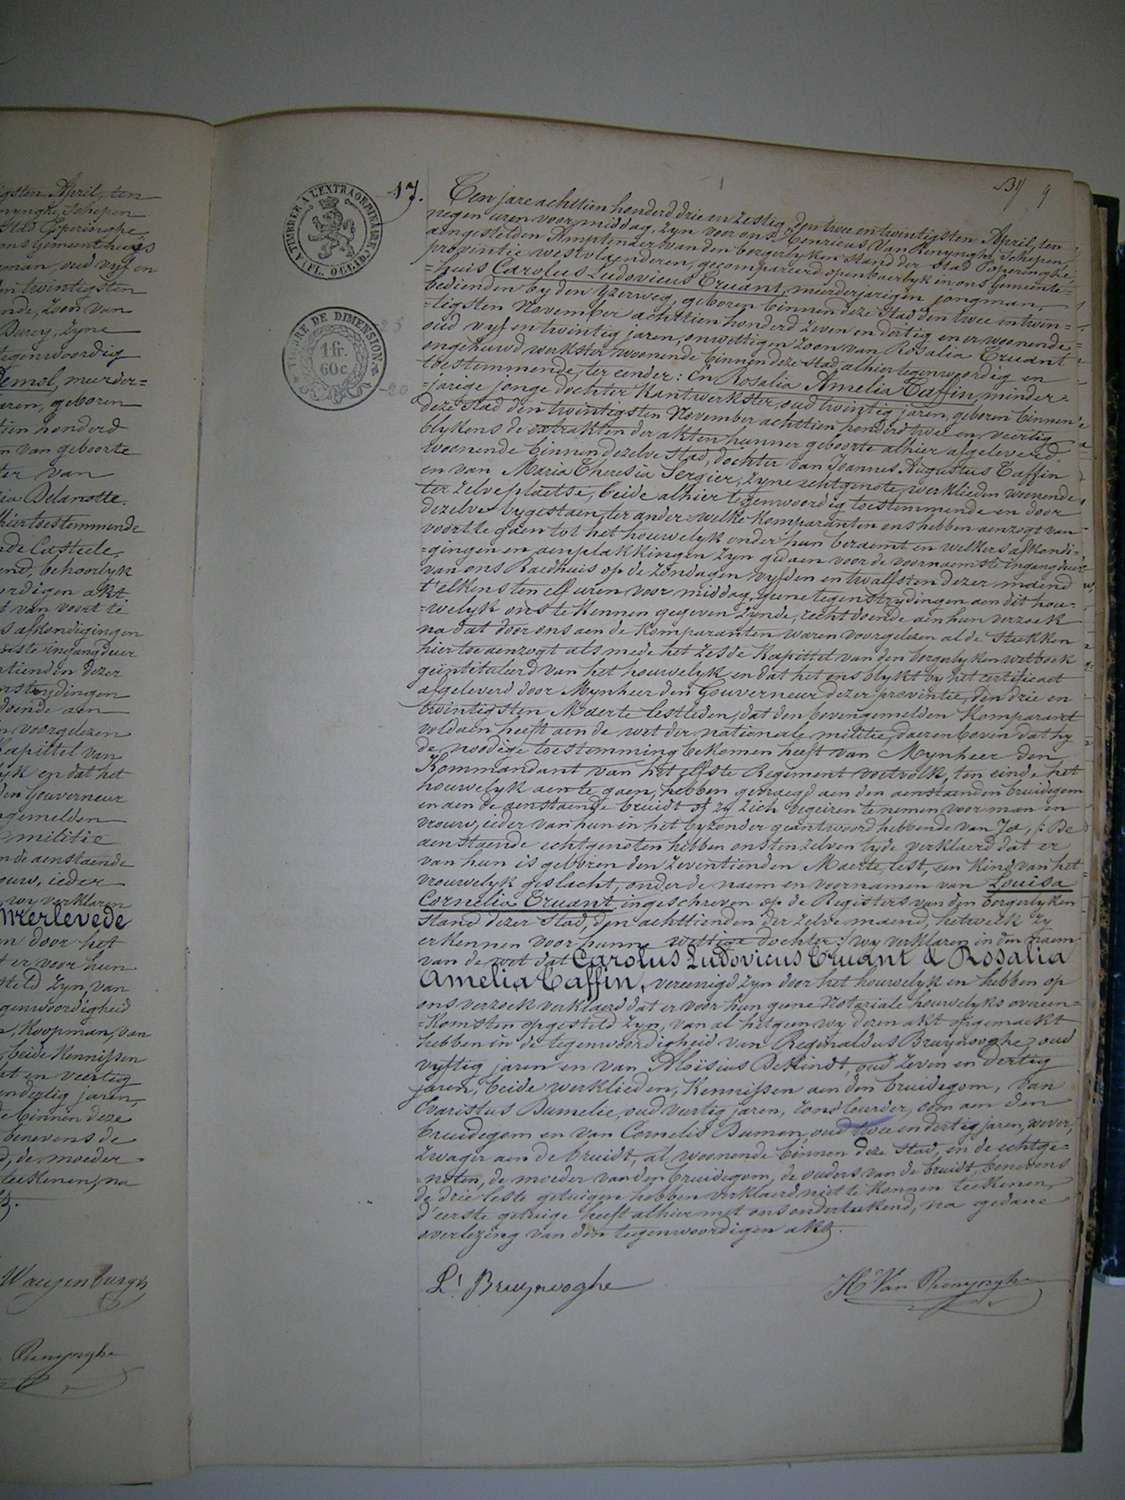 igsten April, ten
nynghe, Schepen
Stad Poperinghe,
ons Gemeenthuys
gman, oud vyf en
en twintigsten
onde, zoon van
Darcy, zyne
tegenwoordig
Demol, meerder=
aren, geboren
tien honderd
n van geboorte
ter van
ia Delanotte
hier toestemmende
nde Casteele,
end, behoorlyk
ordigen akt
t van voort te
s afkondigingen
iste ingangdeur
ntienden dezer
nstrydingen
doende aen
n voorgelezen
Kapittel van
lyk en dat het
den Gouverneur
ngemelden
militie
n de aenstaende
ouw, ieder
wy verklaren
merlevede
n door het
t er voor hun
steld zyn, van
genwoordigheid
n, koopman, van
beide Kennissen
ht en veertig
endertig jaren,
de binnen deze
benevens de
d, de moeder
teekenen, na
Waeyenburgh
Renynghe
TIMBRE A L'EXTRAORDINAIRE
(FL. OCCID.)
TIMBRE DE DIMENSION
1 fr.
60 c.
17.
9
Ten jare achttien honderd drie en zestig, den twee en twintigsten April, ten
negen uren voormiddag, zyn voor ons, Henricus Van Renynghe, Schepen,
aengestelden Amptenaer van den borgerlyken stand der Stad Poperinghe,
provintie westvlaenderen, gecompareerd openbaerlyk in ons Gemeente=
=huis Carolus Ludovicus Cruant, meerderjarigen jongman,
bedienden by den Yzerweg, geboren binnen deze Stad den twee en twin=
=tigsten November achttien honderd zeven en dertig en er woonende
oud vyf en twintig jaren, onwettigen zoon van Rosalia Cruant
ongehuwd werkster woonende binnen deze stad, alhier tegenwoordig en
toestemmende, ter eender: En Rosalia Amelia Taffin, minder=
=jarige jonge dochter Kantwerkster, oud twintig jaren, geboren binnen
deze Stad den twintigsten November achttien honderd twee en veertig
blykens de extrakten der akten hunner geboorte alhier afgeleverd.
woonende binnen dezelve Stad, dochter van Joannes Augustus Taffin
en van Maria Theresia Sergier, zyne echtgenote, werklieden woonende
ter zelve plaetse, beide alhier tegenwoordig toestemmende en door
dezelve bygestaen, ter ander welke komparanten ons hebben aenzogt van
voort te gaen tot het houwelyk onder hun beraemt en welkers afkondi=
=gingen en aenplakkingen zyn gedaen voor de voornaemste ingangdeur
van ons Raedhuis op de Zondagen vyfden en twalfsten dezer maend
t'elkens ten elf uren voor middag, geene tegenstrydingen aen dit hou=
=welyk ons te kennen gegeven zynde, recht doende aen hun verzoek
na dat door ons aen de Komparanten waren voorgelezen al de stukken
hiertoe aenzogt als mede het zesde Kapittel van den borgerlyken wetboek
geïntitaleerd van het houwelyk en dat het ons blykt by het certificaet
afgeleverd door Mynheer den Gouverneur dezer provintie, den drie en
twintigsten Maerte lestleden, dat den bovengemelden Komparant
voldaen heeft aen de wet der nationale militie, daerenboven dat hy
de noodige toestemming bekomen heeft van Mynheer den
Kommandant van het elfste Regiment voetvolk, ten einde het
houwelyk aen te gaen, hebben gevraegd aen den aenstaenden bruidegom
en aen de aenstaende bruidt of zy zich begeiren te nemen voor man en
vrouw, ieder van hun in het byzonder geantwoord hebbende van Ja, /: De
aenstaende echtgenoten hebben ons ten zelven tyde verklaerd dat er
van hun is geboren den zeventienden Maerte lest, een kind van het
vrouwelyk geslacht, onder de naem en voornamen van Louisa
Cornelia Cruant, ingeschreven op de Registers van den borgerlyken
Stand dezer Stad, den achttienden der zelve maend, hetwelk zy
erkennen voor hunne wettige dochter :/ wy verklaren in den naem
van de wet dat Carolus Ludovicus Cruant & Rosalia
Amelia Taffin, vereenigd zyn door het houwelyk en hebben op
ons verzoek verklaerd dat er voor hun geene Notariale houwelyks overeen=
=komsten opgesteld zyn, van al hetgeen wy dezen akt opgemaekt
hebben in de tegenwoordigheid van Reginaldus Bruynooghe, oud
vyftig jaren en van Aloïsius DeKindt, oud zeven en dertig
jaren, beide werklieden, Kennissen aen den bruidegom, van
Evaristus Dumelie, oud veertig jaren, landbouwer, oom aen den
bruidegom en van Cornelis Dumon, oud twee en dertig jaren, wever,
zwager aen de bruidt, al woonende binnen deze Stad, en de echtge=
=noten, de moeder van den bruidegom, de ouders van de bruidt, benevens
de drie leste getuigen hebben verklaerd niet te konnen teekenen,
d'eerste getuige heeft alhier met ons onderteekend, na gedane
overlezing van den tegenwoordigen akt.
Bruynooghe
Hs Van Renynghe